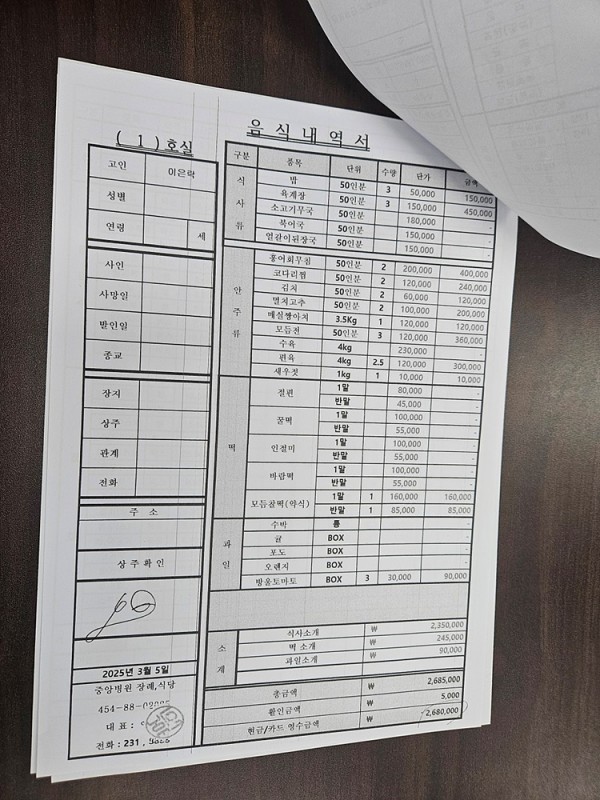 음 식 내 역 서
( 1 ) 호실
고인 이은락
성별
연령 세
사인
사망일
발인일
종교
장지
상주
관계
전화
주 소
상 주 확 인
2025년 3월 5일
중앙병원 장례,식당
454-88-02
대 표 :
전화 : 231
구분 품목 단위 수량 단가 금액
식사류
밥 50인분 3 50,000 150,000
육계장 50인분 3 150,000 450,000
소고기무국 50인분 180,000 -
북어국 50인분 150,000 -
얼갈이된장국 50인분 150,000 -
안주류
홍어회무침 50인분 2 200,000 400,000
코다리찜 50인분 2 120,000 240,000
김치 50인분 2 60,000 120,000
멸치고추 50인분 2 100,000 200,000
매실짱아치 3.5Kg 1 120,000 120,000
모듬전 50인분 3 120,000 360,000
수육 4kg 230,000 -
편육 4kg 2.5 120,000 300,000
새우젓 1kg 1 10,000 10,000
떡
절편 1말 80,000 -
반말 45,000 -
꿀떡 1말 100,000 -
반말 55,000 -
인절미 1말 100,000 -
반말 55,000 -
바람떡 1말 100,000 -
반말 55,000 -
모듬찰떡(약식) 1말 1 160,000 160,000
반말 1 85,000 85,000
과일
수박 통 -
귤 BOX -
포도 BOX -
오렌지 BOX -
방울토마토 BOX 3 30,000 90,000
소계
식사소계 ₩ 2,350,000
떡 소계 ₩ 245,000
과일소계 ₩ 90,000
총금액 ₩ 2,685,000
할인금액 ₩ 5,000
현금/카드 영수금액 ₩ 2,680,000